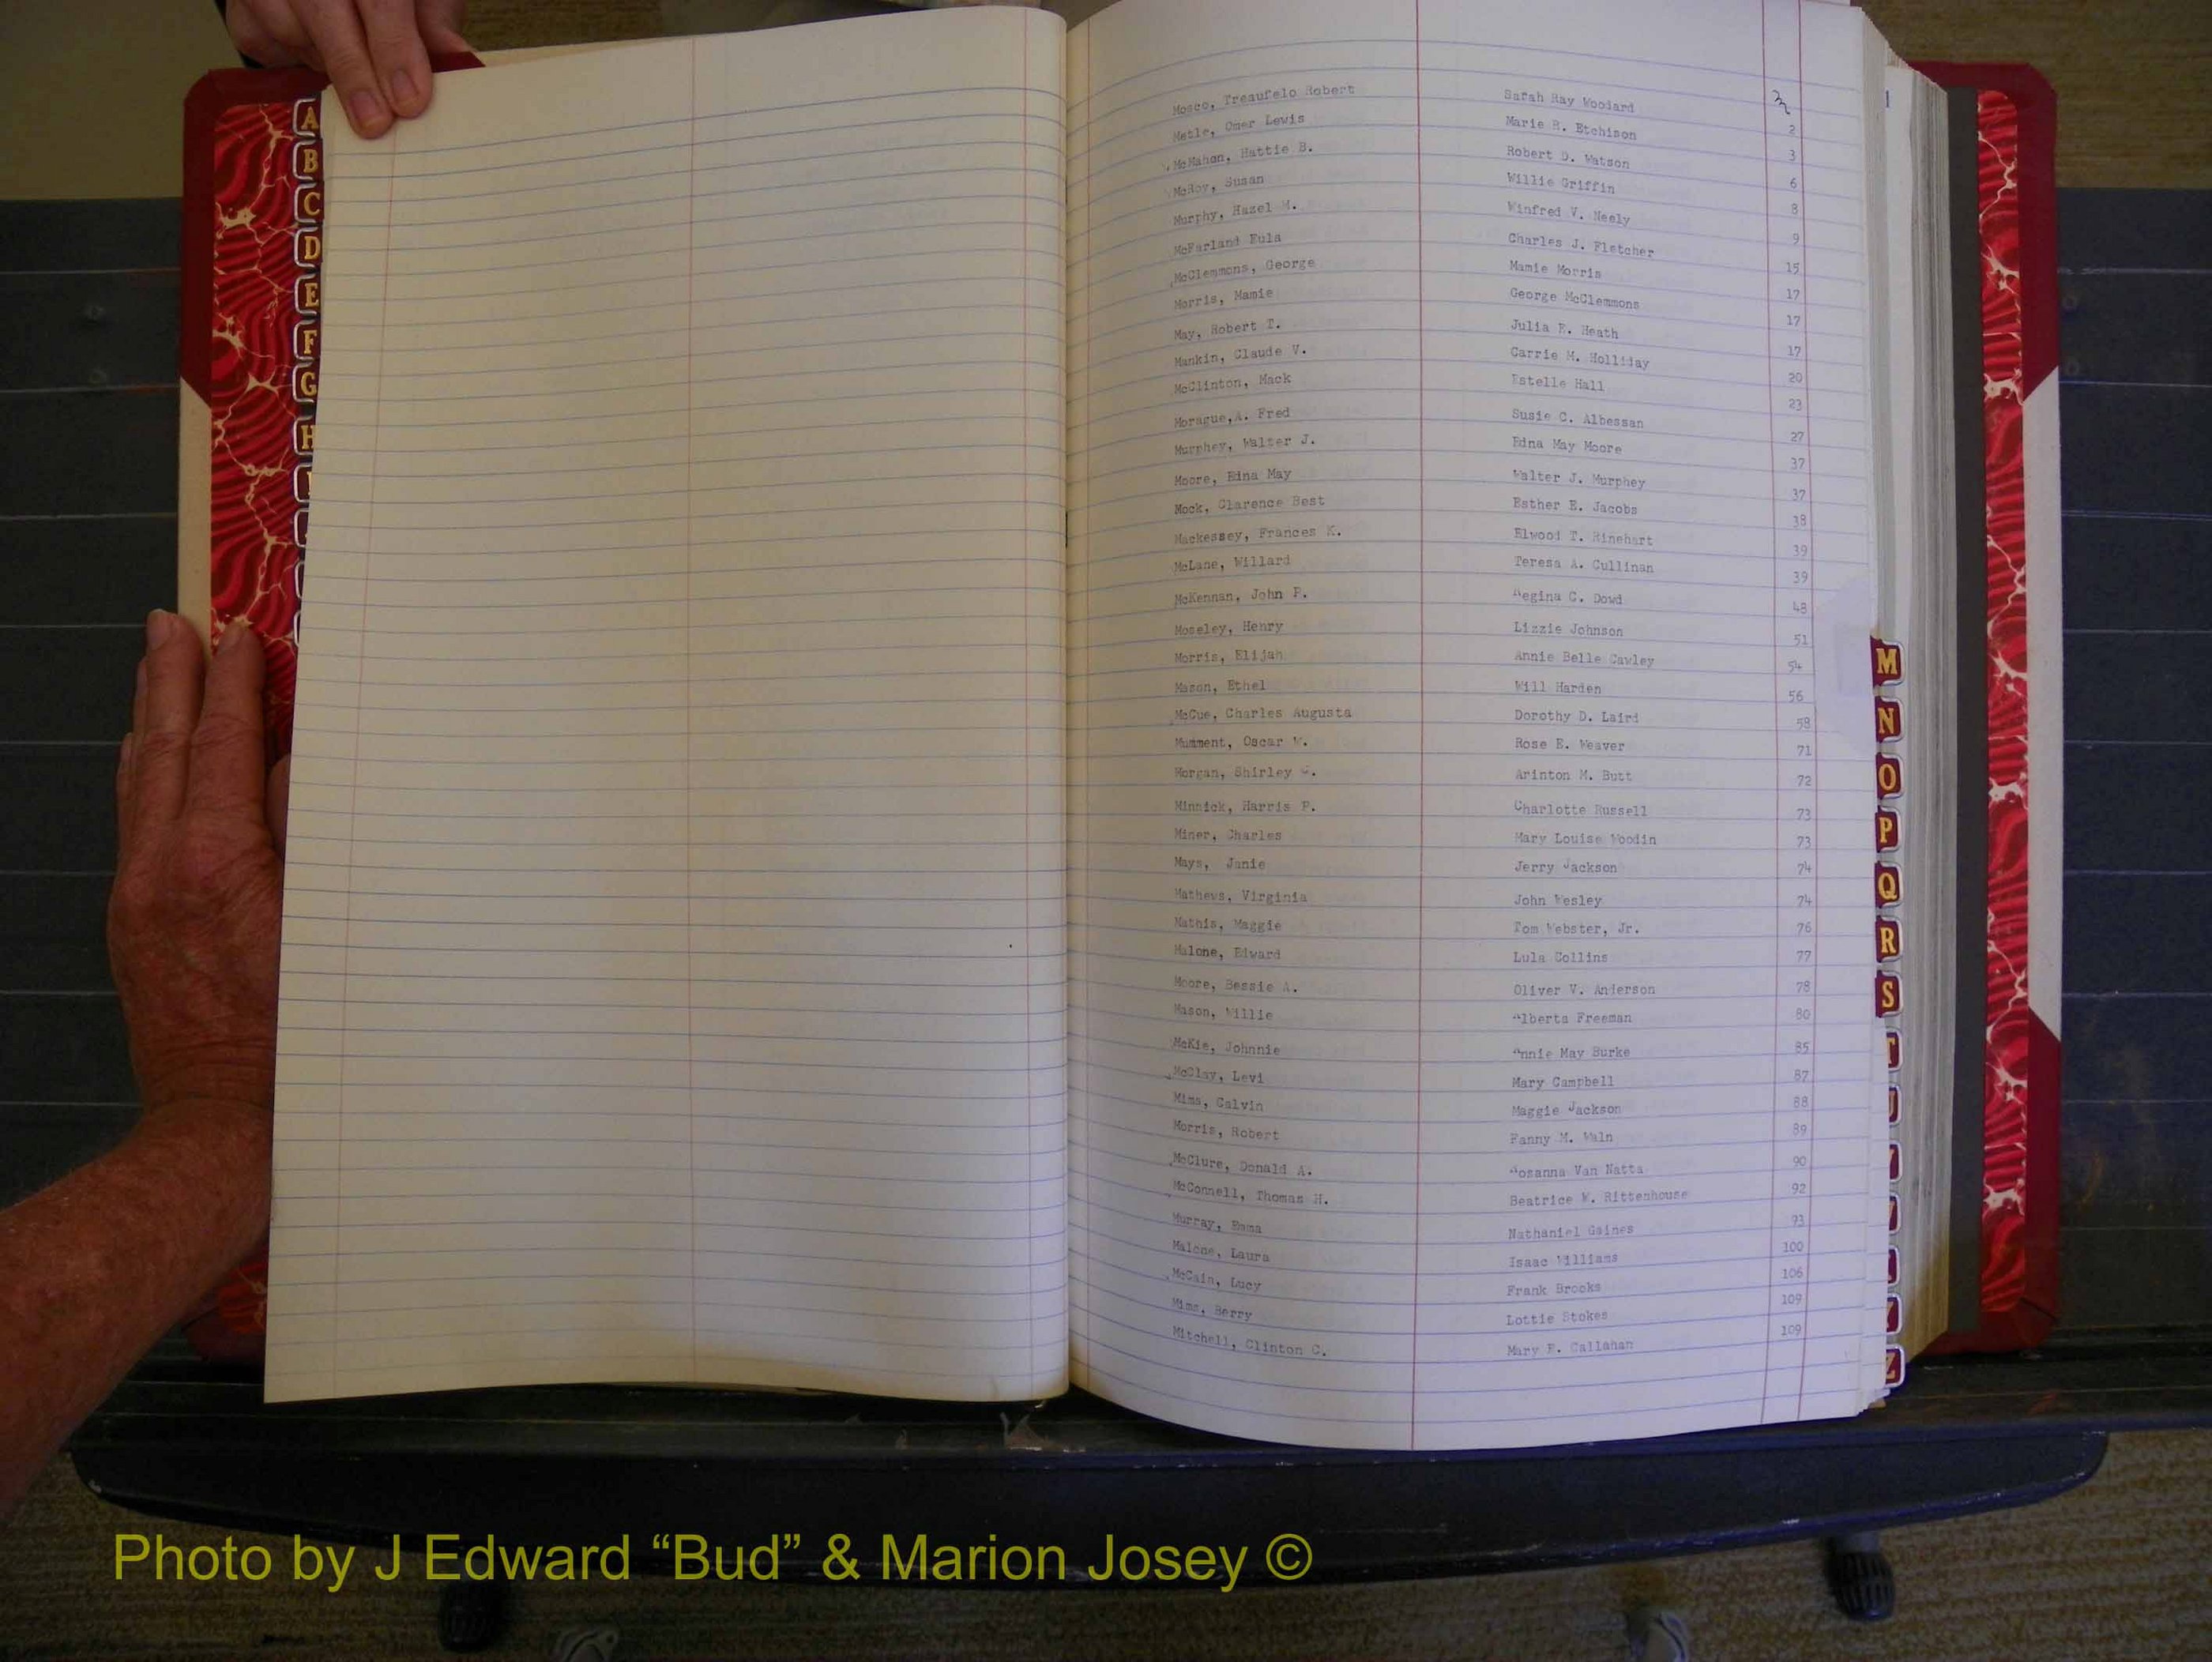 A
B
C
D
E
F
G
H
Mosco, Treaufelo Robert Sarah Ray Woodard 2
Metle, Omer Lewis Marie B. Etchison 3
McMahon, Hattie B. Robert D. Watson 6
McRoy, Susan Willie Griffin 8
Murphy, Hazel M. Winfred V. Neely 9
McFarland Eula Charles J. Fletcher 15
McClemmons, George Mamie Morris 17
Morris, Mamie George McClemmons 17
May, Robert T. Julia E. Heath 17
Mankin, Claude V. Carrie M. Holliday 20
McClinton, Mack Estelle Hall 23
Morague,A. Fred Susie C. Albessan 27
Murphey, Walter J. Edna May Moore 37
Moore, Edna May Walter J. Murphey 37
Mock, Clarence Best Esther E. Jacobs 38
Mackessey, Frances K. Elwood T. Rinehart 39
McLane, Willard Teresa A. Cullinan 39
McKennan, John P. Regina C. Dowd 48
Moseley, Henry Lizzie Johnson 51
Morris, Elijah Annie Belle Cawley 54
Mason, Ethel Will Harden 56
McCue, Charles Augusta Dorothy D. Laird 58
Mumment, Oscar W. Rose E. Weaver 71
Morgan, Shirley G. Arinton M. Butt 72
Minnick, Harris P. Charlotte Russell 73
Miner, Charles Mary Louise Woodin 73
Mays, Janie Jerry Jackson 74
Mathews, Virginia John Wesley 74
Mathis, Maggie Tom Webster, Jr. 76
Malone, Edward Lula Collins 77
Moore, Bessie A. Oliver V. Anderson 78
Mason, Willie Alberta Freeman 80
McKie, Johnnie Annie May Burke 85
McClay, Levi Mary Campbell 87
Mims, Calvin Maggie Jackson 88
Morris, Robert Fanny M. Waln 89
McClure, Donald A. Rosanna Van Natta 90
McConnell, Thomas H. Beatrice W. Rittenhouse 92
Murray, Emma Nathaniel Gaines 93
Malone, Laura Isaac Williams 100
McCain, Lucy Frank Brooks 106
Mims, Berry Lottie Stokes 109
Mitchell, Clinton C. Mary E. Callahan 109
M
N
O
P
Q
R
S
Z
Photo by J Edward “Bud” & Marion Josey ©